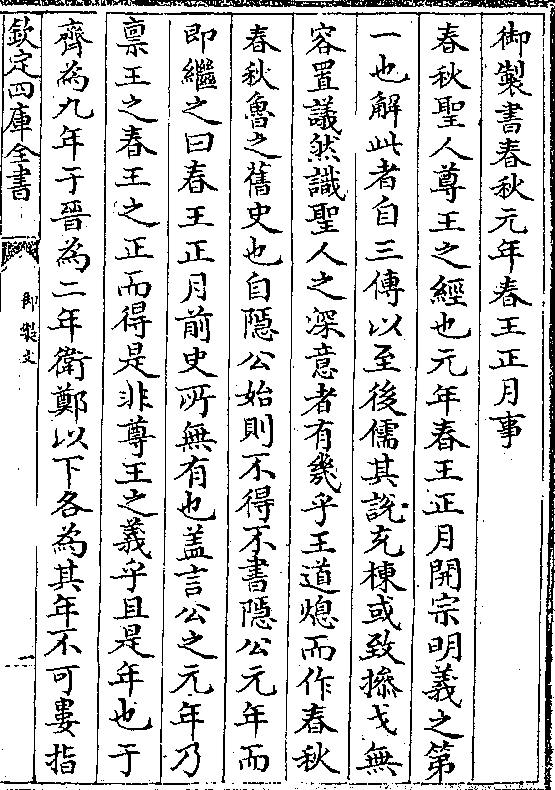 御製書春秋元年春王正月事
春秋聖人尊王之經也元年春王正月開宗明義之第
一也解此者自三傳以至後儒其說充棟或致摻戈無
容置議然識聖人之深意者有幾乎王道熄而作春秋
春秋魯之舊史也自隱公始則不得不書隱公元年而
即繼之曰春王正月前史所無有也蓋言公之元年乃
禀王之春王之正而得是非尊王之義乎且是年也于
齊為九年于晉為二年衛鄭以下各為其年不可婁指
欽定四庫全書
御製文
一